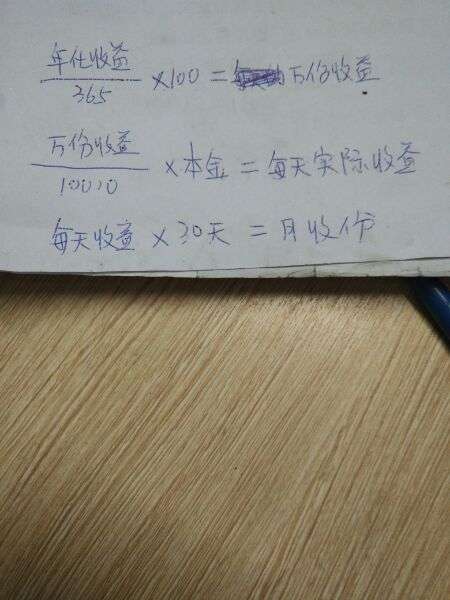 年化收益
365
×100=万份收益
万份收益
10000
×本金=每天实际收益
每天收益×30天=月收份